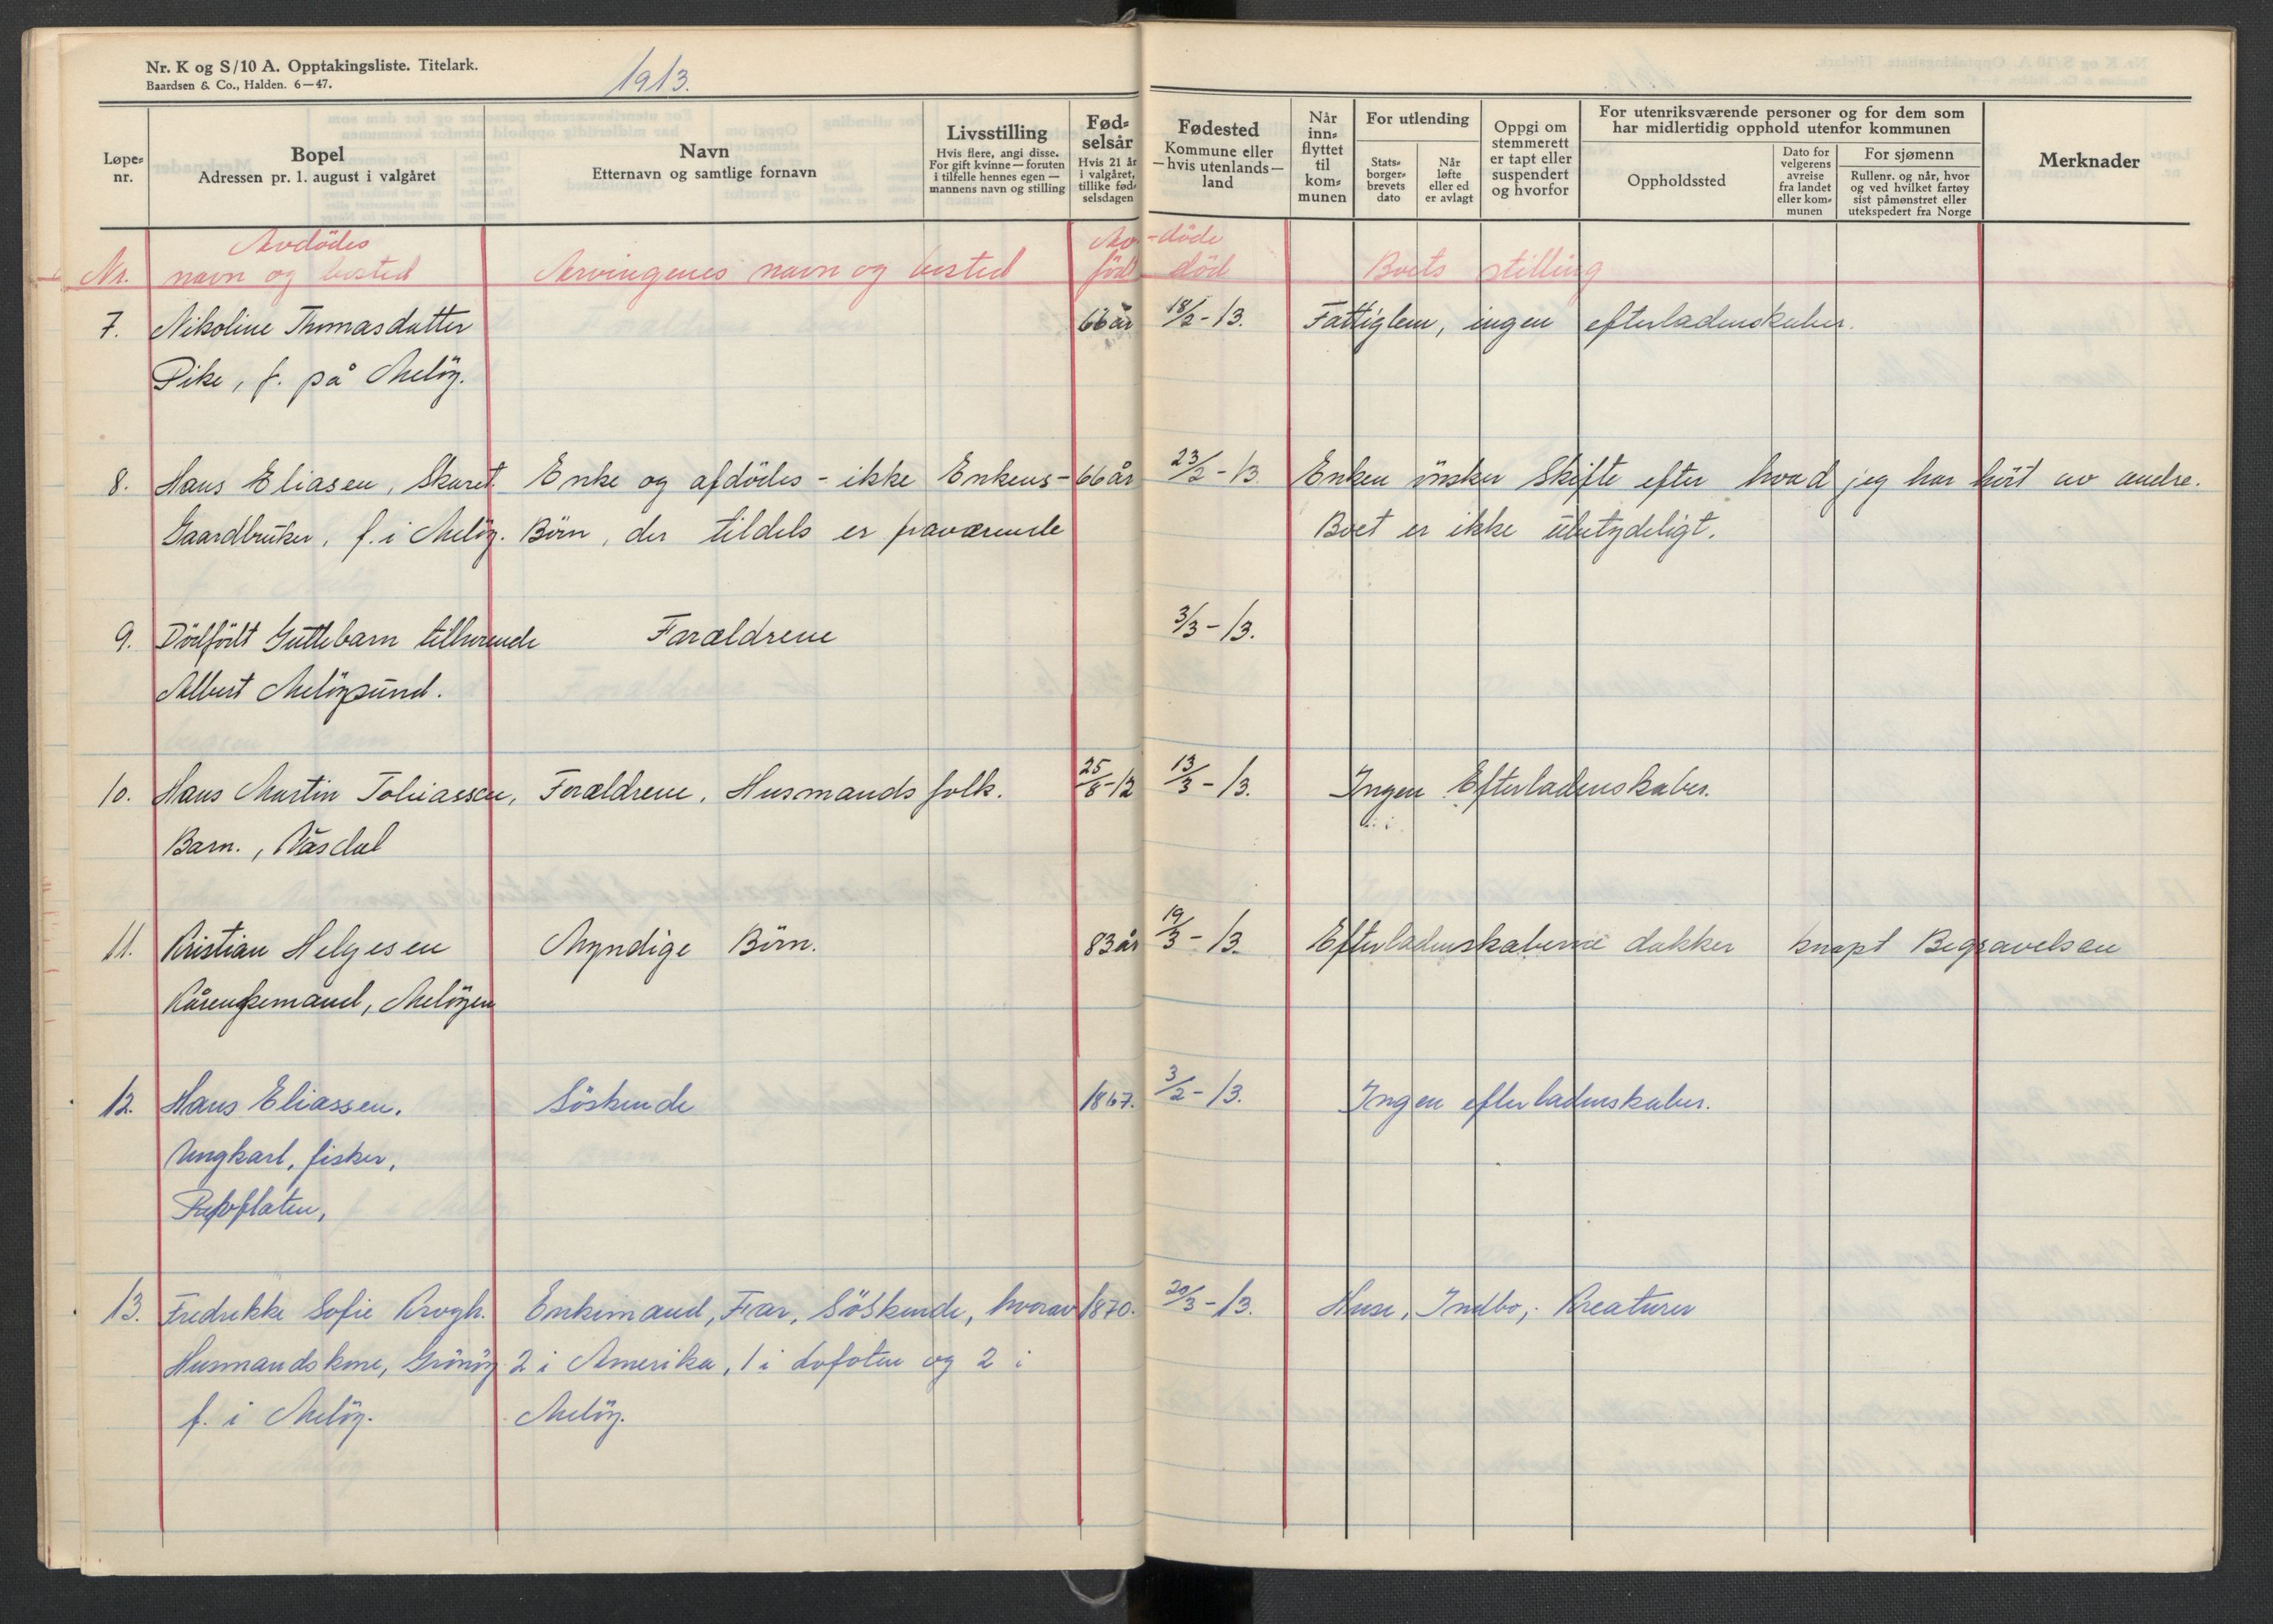 Nr. K og S/10 A. Opptakingsliste. Titelark.
Baardsen & Co., Halden. 6—47.
1913.
Løpe-
nr.
Bopel
Adressen pr. 1. august i valgåret
Navn
Etternavn og samtlige fornavn
Livsstilling
Hvis flere, angi disse.
For gift kvinne — foruten
i tilfelle hennes egen —
mannens navn og stilling
Fød-
selsår
Hvis 21 år
i valgåret,
tillike fød-
selsdagen
Fødested
Kommune eller
— hvis utenlands —
land
Når
inn-
flyttet
til
kom-
munen
For utlending
Stats-
borger-
brevets
dato
Når
løfte
eller ed
er avlagt
Oppgi om
stemmerett
er tapt eller
suspendert
og hvorfor
For utenriksværende personer og for dem som
har midlertidig opphold utenfor kommunen
Oppholdssted
Dato for
velgerens
avreise
fra landet
eller kom-
munen
For sjømenn
Rullenr. og når, hvor
og ved hvilket fartøy
sist påmønstret eller
utekspedert fra Norge
Merknader
Avdödes Av-döde
Nr. navn og bosted Arvingenes navn og bosted född död Boets stilling
7. Nikoline Thomasdatter 66 år 18/2-13. Fattiglem, ingen efterladenskaber.
Pike, f. på Melöy.
8. Hans Eliasen, Skaret. Enke og afdödes - ikke Enkens - 66 år 23/2-13. Enken önsker Skifte efter hvad jeg har hört av andre.
Gaardbruker, f. i Melöy. Börn, der tildels er fraværende Boet er ikke ubetydeligt.
9. Dödfödt Guttebarn tilhörende Forældrene 3/3-13.
Albert Melöysund.
10. Hans Martin Tobiassen, Forældrene, Husmandsfolk. 25/8-12 13/3-13. Ingen Efterladenskaber.
Barn., Våsdal
11. Kristian Helgesen Myndige Börn. 83 år 19/3-13. Efterladenskaberne dækker knapt Begravelsen
Kårenkemand, Melöyen
12. Hans Eliassen. Söskende 1867. 3/2-13. Ingen efterladenskaber.
Ungkarl, fisker,
13. Fredrikke Sofie Krogh. Enkemand, Far, Söskende, hvorav 1870. 20/3-13. Huse, Indbo, Kreaturer
Husmandskone, Grönöy 2 i Amerika, 1 i Lofoten og 2 i
f. i Melöy. Melöy.